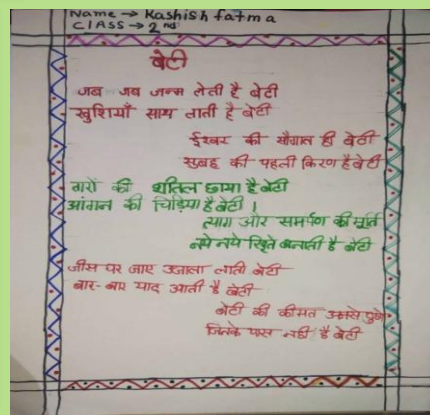 Name → Kashish fatma
CLASS → 2nd
बेटी
जब जब जन्म लेती है बेटी
खुशियाँ साथ लाती है बेटी
ईश्वर की सौगात ही बेटी
सुबह की पहली किरण है बेटी
तारों की शीतल छाया है बेटी
आंगन की चिड़िया है बेटी।
त्याग और समर्पण की मूर्ति
नये नये रिश्ते बनाती है बेटी
जीस घर जाए उजाला लाती बेटी
बार-बार याद आती है बेटी
बेटी की कीमत उनसे पुछो
जिनके पास नही है बेटी